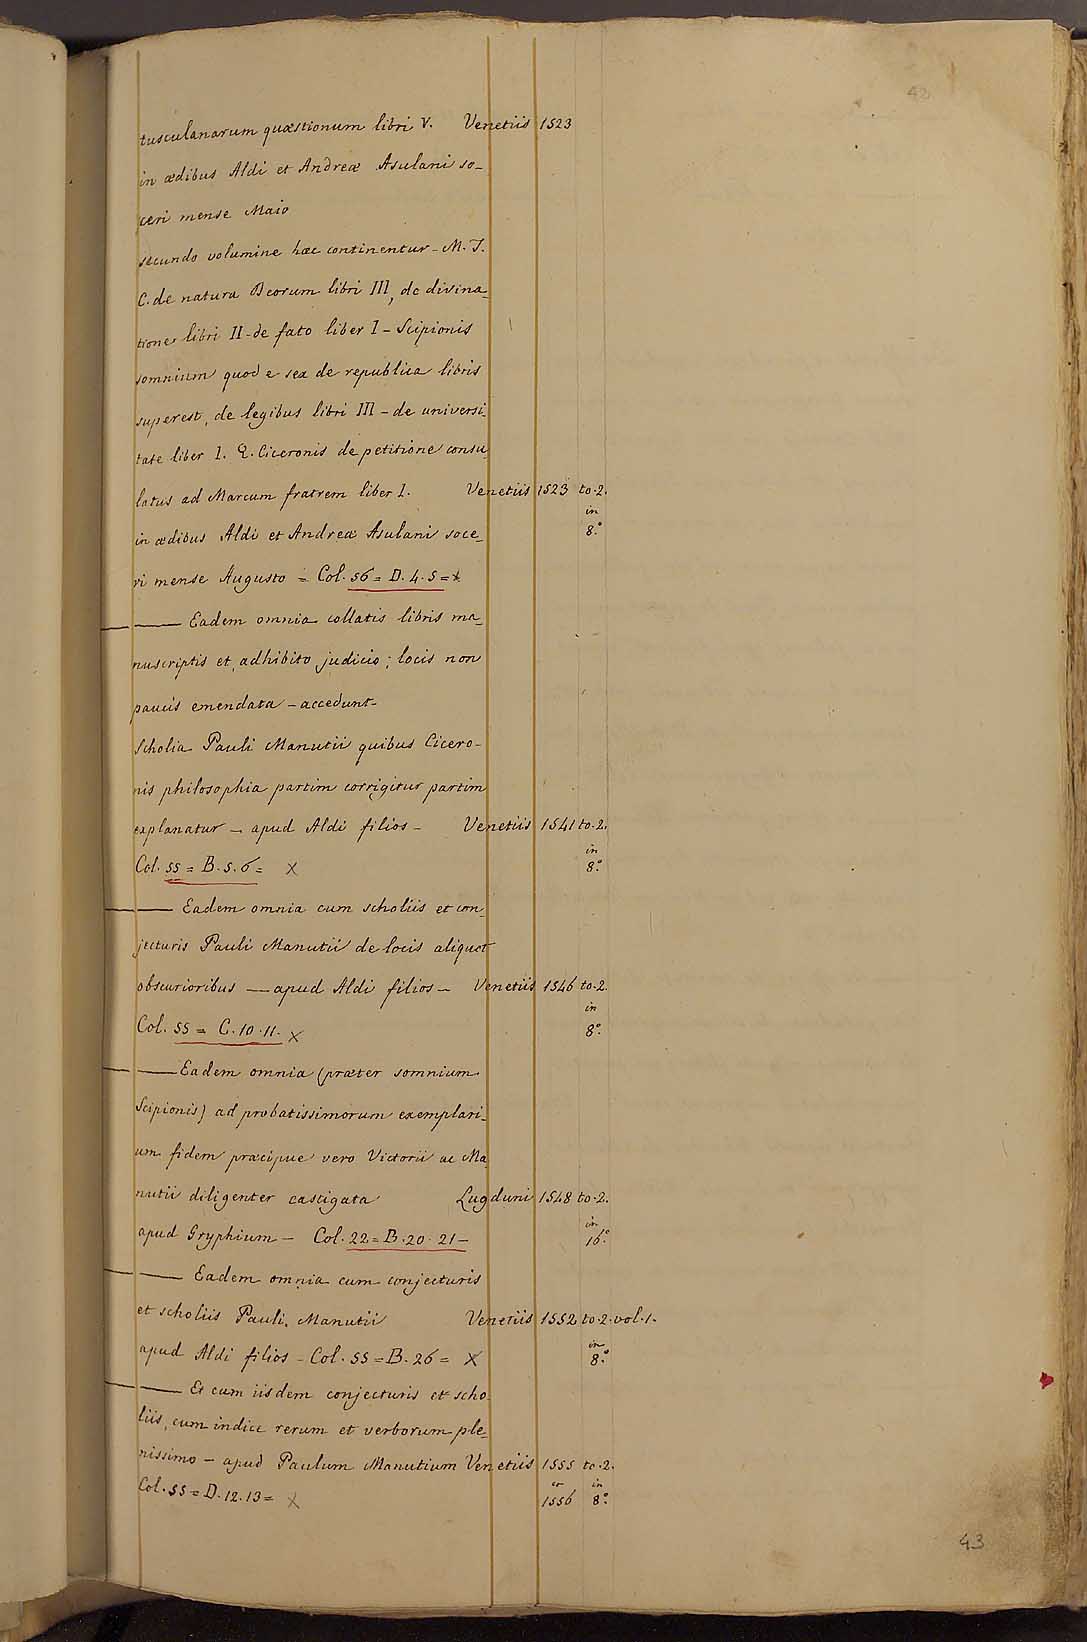 42
tusculanarum quæstionum libri V. Venetiis 1523
in ædibus Aldi et Andreæ Asulani so-
ceri mense Maio
secundo volumine hæc continentur - M. T.
C. de natura Deorum libri III, de divina-
tione libri II - de fato liber I - Scipionis
somnium quod e sex de republica libris
superest, de legibus libri III - de universi-
tate liber I. Q. Ciceronis de petitione consu-
latus ad Marcum fratrem liber I. Venetiis 1523 to. 2.
in
in ædibus Aldi et Andreæ Asulani soce- 8.°
ri mense Augusto = Col. 56 = D. 4. 5 = x
—— Eadem omnia collatis libris ma-
nuscriptis et, adhibito judicio; locis non
paucis emendata - accedunt-
Scholia Pauli Manutii quibus Cicero-
nis philosophia partim corrigitur partim
explanatur - apud Aldi filios - Venetiis 1541 to. 2.
in
Col. 55 = B. 5. 6 = X 8.°
—— Eadem omnia cum scholiis et con-
jecturis Pauli Manutii de locis aliquot
obscurioribus — apud Aldi filios - Venetiis 1546 to. 2.
in
Col. 55 = C. 10. 11. X 8.°
—— Eadem omnia (præter somnium
Scipionis) ad probatissimorum exemplari-
um fidem præcipue vero Victorii ac Ma-
nutii diligenter castigata Lugduni 1548 to. 2.
in
apud Gryphium - Col. 22 = B. 20. 21 - 16.°
—— Eadem omnia cum conjecturis
et scholiis Pauli Manutii Venetiis 1552 to. 2. vol. 1.
in
apud Aldi filios - Col. 55 = B. 26 = X 8.°
—— Et cum iisdem conjecturis et scho-
liis, cum indice rerum et verborum ple-
nissimo - apud Paulum Manutium Venetiis 1555 to. 2.
et in
Col. 55 = D. 12. 13 = X 1556 8.°
43